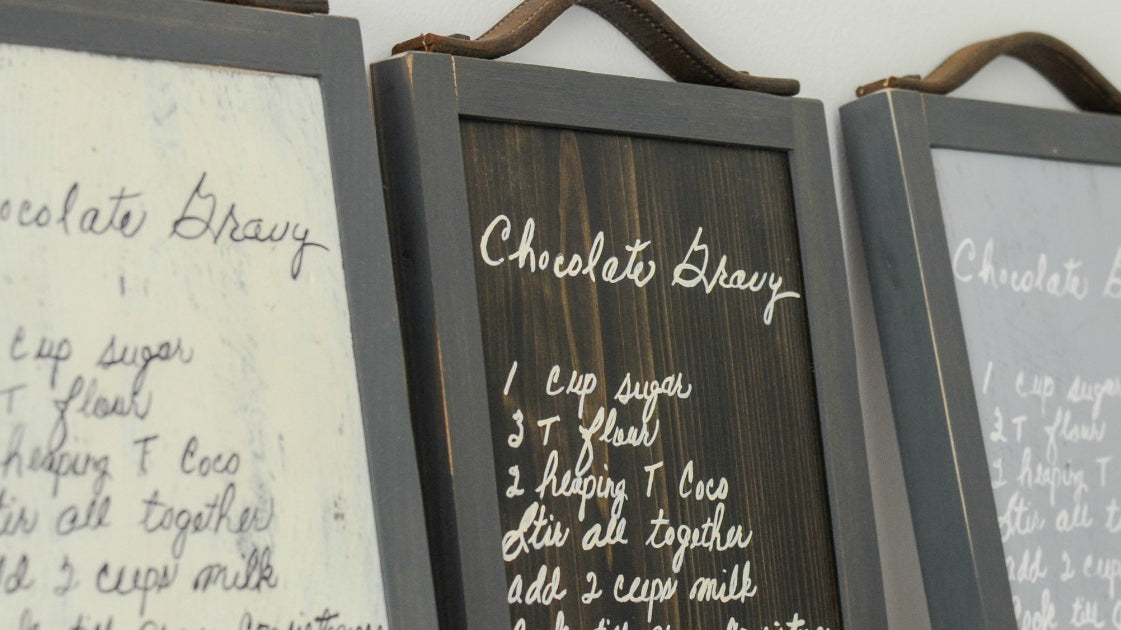 ocolate Gravy
cup sugar
T flour
heaping T Coco
tir all together
dd 2 cups milk
Chocolate Gravy
1 cup sugar
3 T flour
2 heaping T Coco
Stir all together
add 2 cups milk
Cook till
Chocolate G
1 cup sugar
3 T flour
2 heaping T
Stir all t
add 2 cup
Cook till